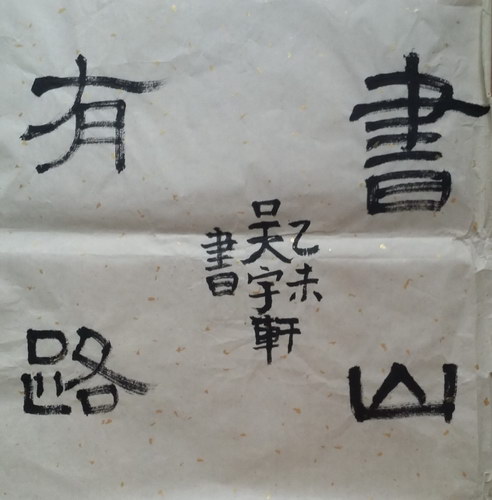 書山
有路
乙未
吳宇軒
書